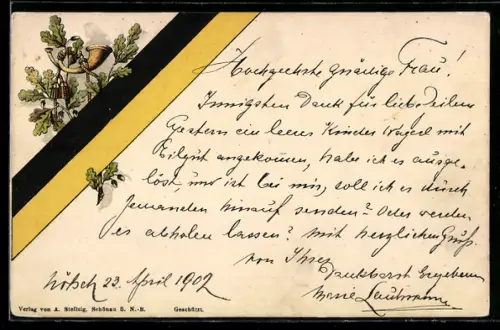 Hochgeehrte gnädige Frau!
Innigsten Dank für lieb. Zeilen
Gestern ein leeres Kinder Wagerl mit
Eilgut angekommen, habe ich es ausge-
löst, und ist bei mir, soll ich es durch
Jemanden hinauf senden? Oder werden
es abholen lassen? Mit herzlichen Gruß
von Ihrer
dankbarst Ergebenen
Marie
23. April 1902
Verlag von A. Stellzig, Schönau b. N.-B.
Geschützt.